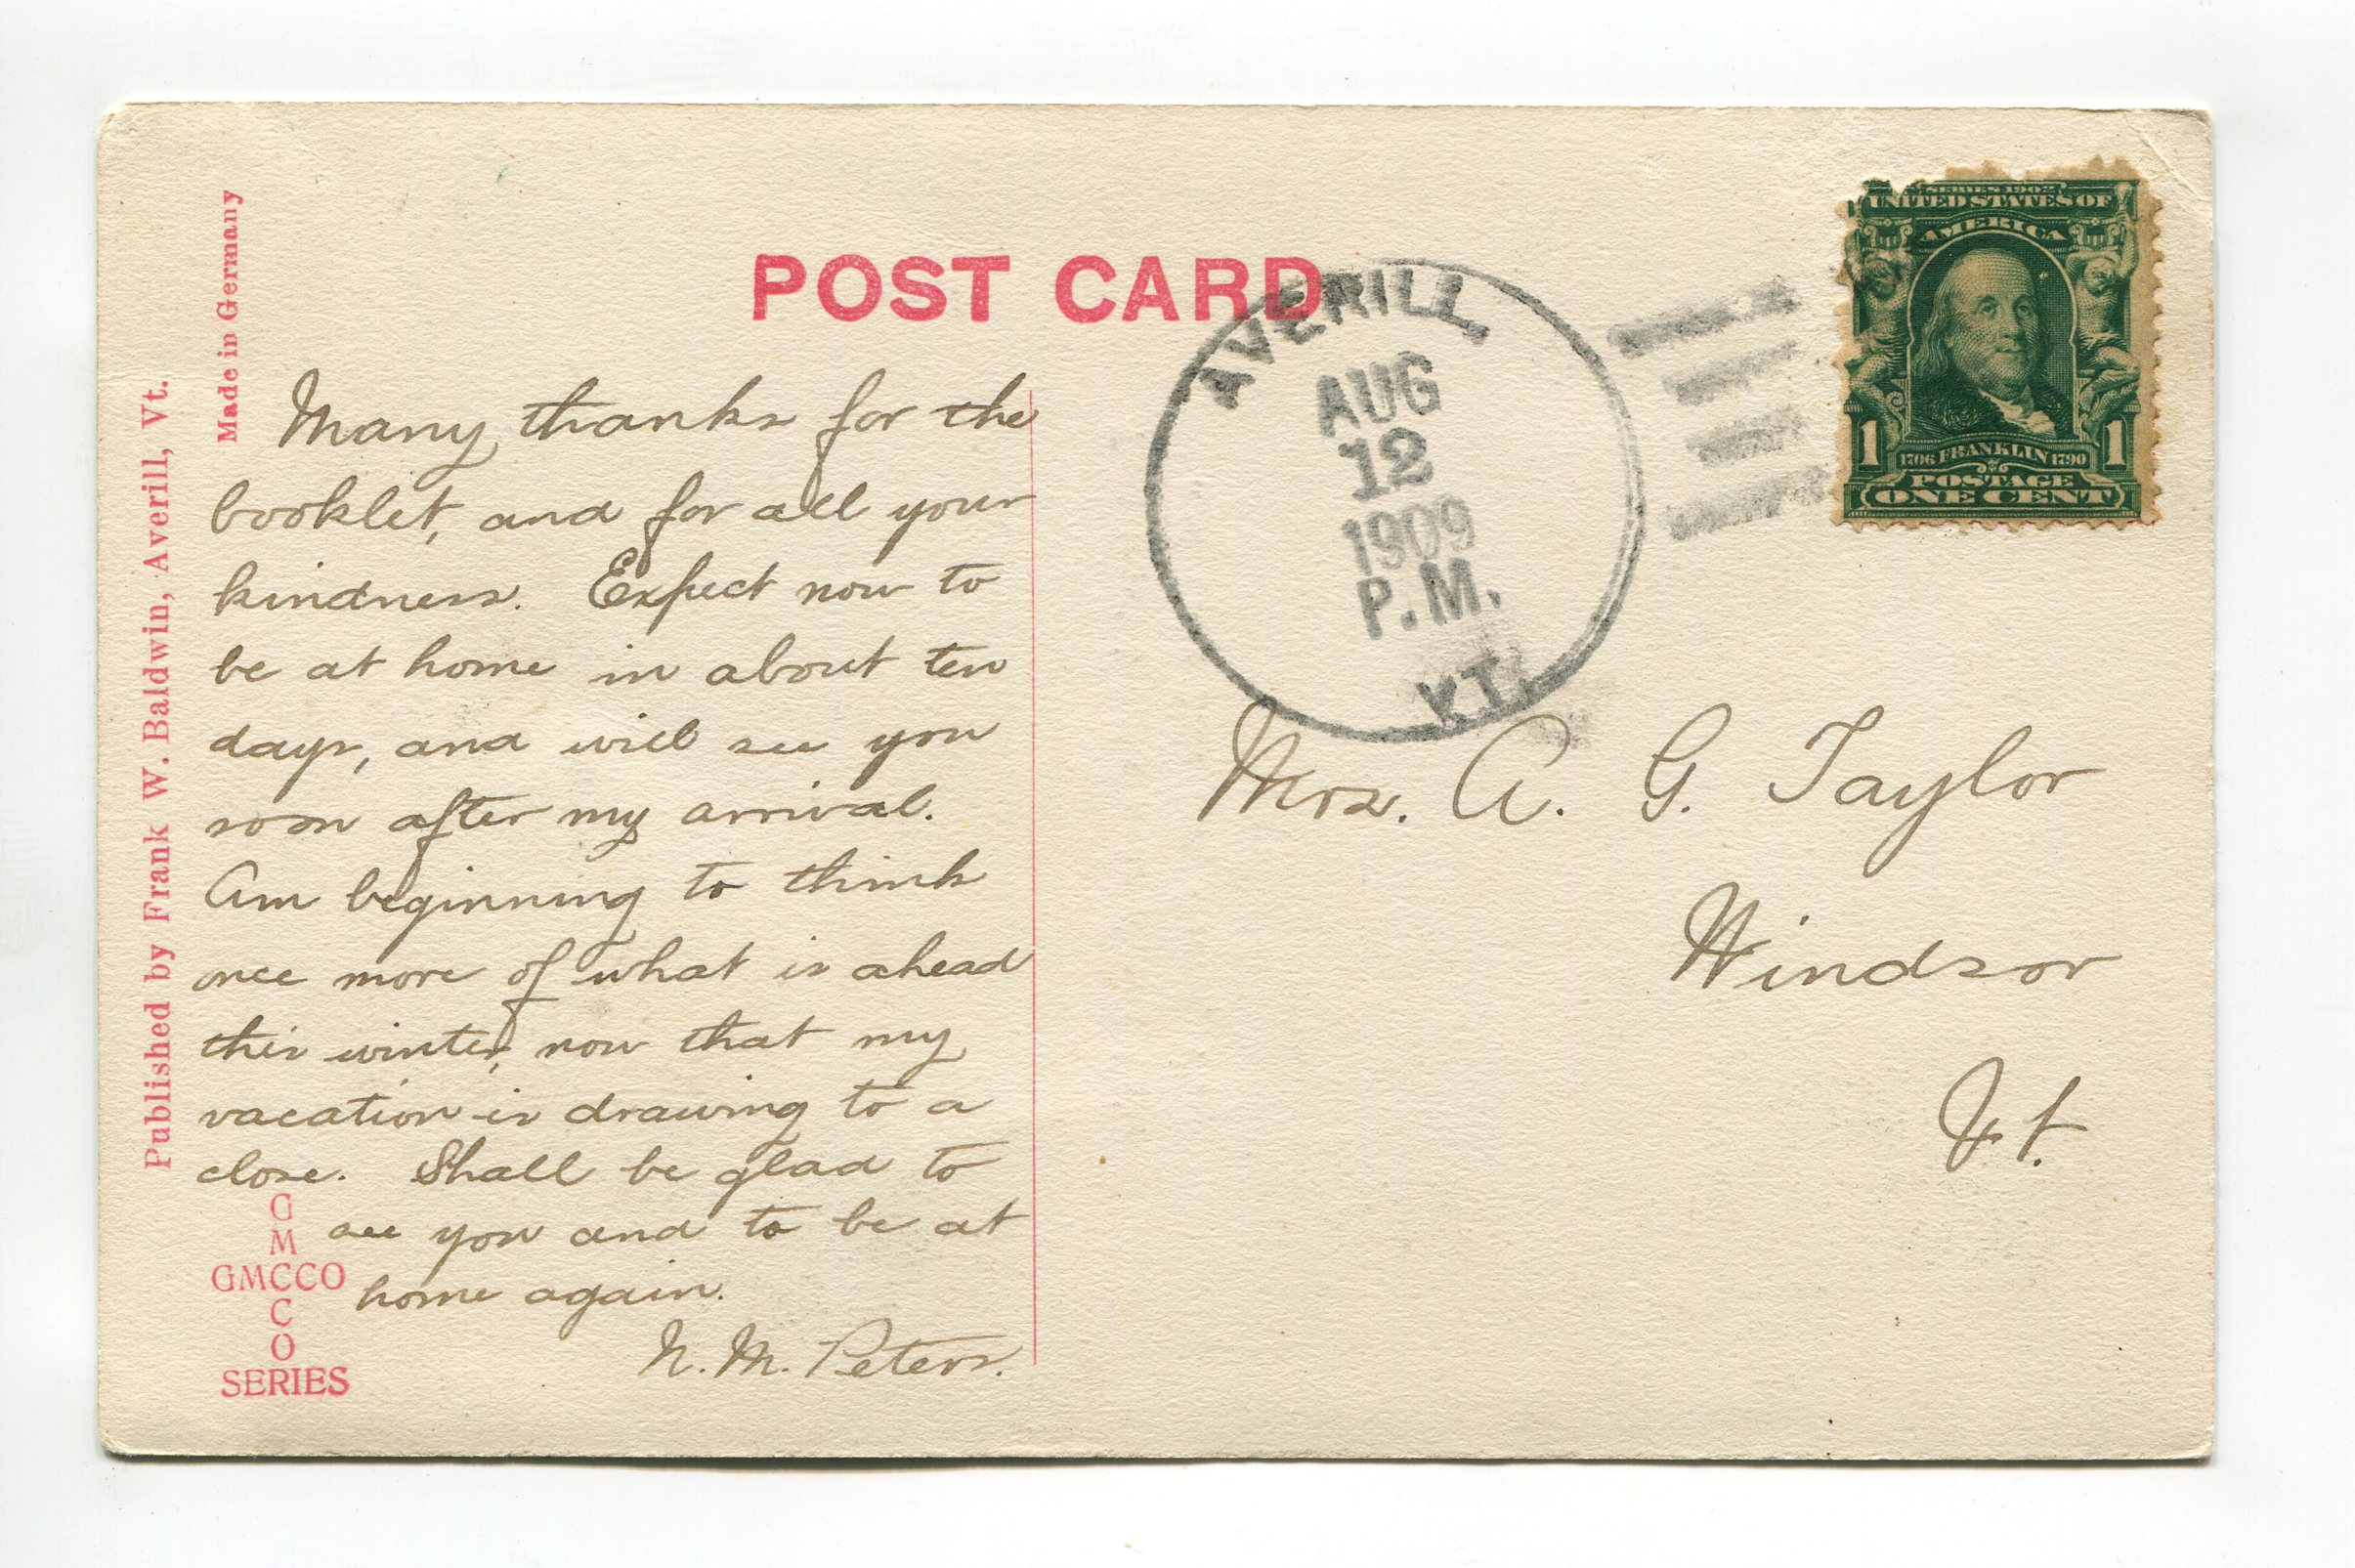 POST CARD
Made in Germany
Published by Frank W. Baldwin, Averill, Vt.
Many thanks for the
booklet, and for all your
kindness. Expect now to
be at home in about ten
days, and will see you
soon after my arrival.
Am beginning to think
once more of what is ahead
this winter, now that my
vacation is drawing to a
close. Shall be glad to
see you and to be at
home again.
N. M. Peters.
G
M
GMCCO
C
O
SERIES
AVERILL,
AUG
12
1909
P.M.
VT.
SERIES 1902
UNITED STATES OF
AMERICA
1 1
1706 FRANKLIN 1790
POSTAGE
ONE CENT
Mrs. A. G. Taylor
Windsor
Vt.